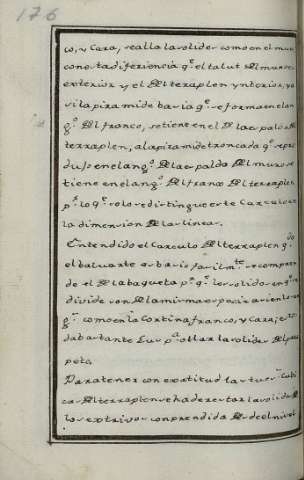 176
co, y Cara, se alla la solides como en el mu
con esta diferiencia q.e el talut Del muro es
exterior y el Del terraplen ynterior, y a
vi la piramide baria q.e se forma en el an
g.o Del franco, se tiene en el De la espalda
terraplen, a la piramide troncada q.e se pro
duse en el ang.o De la espalda Del muro se
tiene en el ang.o Del franco Del terraplen
p.r lo q.e solo se distingue este Carculo
la dimension De las lineas.
Entendido el Carculo Del terraplen q.do
el baluarte es basio facilm.te se compren
de el De la bagueta p.s q.e los solido en q.e se
divide son De la misma especie asi en los
g.s como en la Cortina franco, y Cara; es to
da bastante Lus p.a allar la solides Del para
peto.
Para tener con exatitud las tuesas Cubi
cas Del terraplen se ha de restar la solides De
los extrivos conprendida Desde el nivel